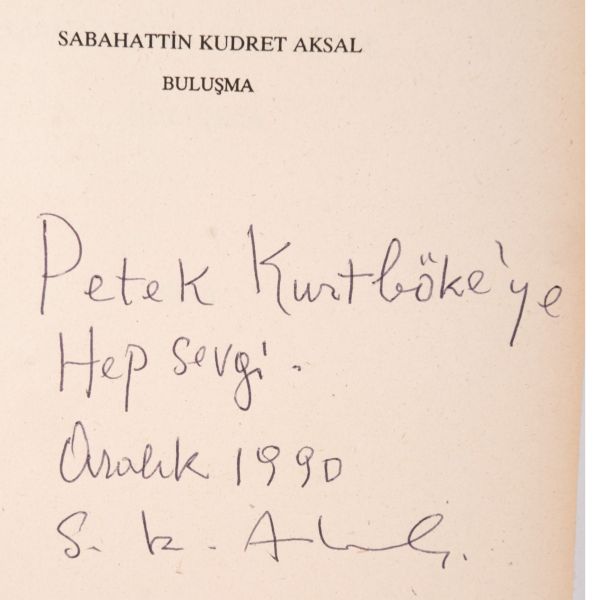 SABAHATTİN KUDRET AKSAL
BULUŞMA
Petek Kurtböke'ye
Hep sevgi.
Aralık 1990
S. K. Aksal.